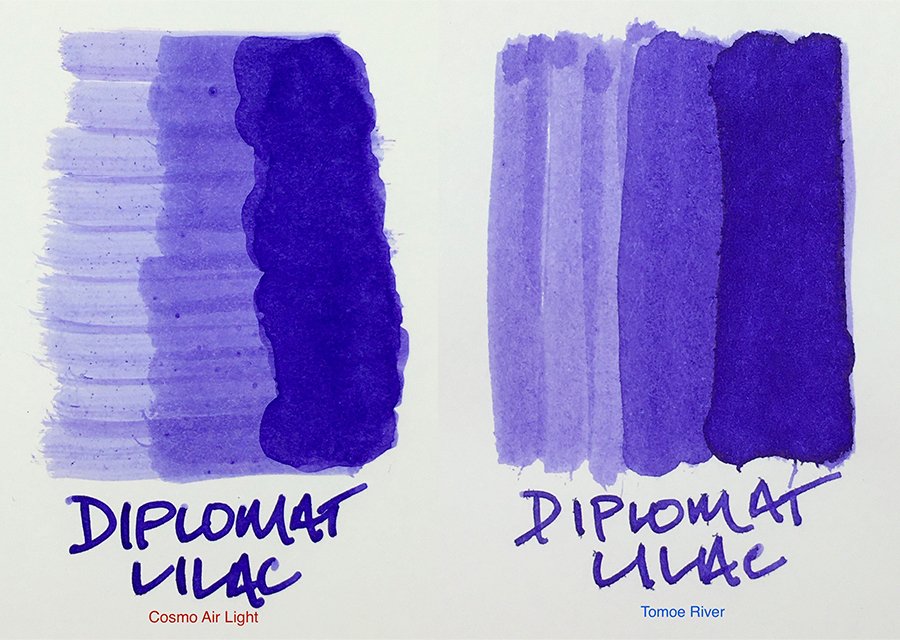 DIPLOMAT
LILAC
Cosmo Air Light
DIPLOMAT
LILAC
Tomoe River